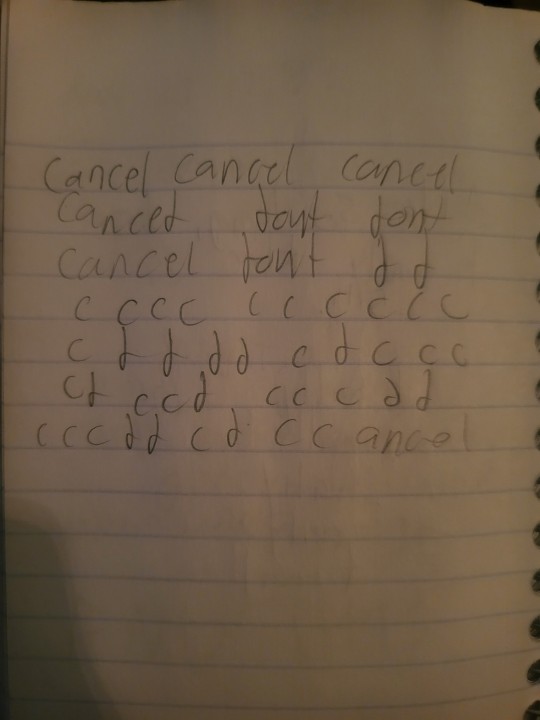 Cancel cancel cancel
Cancel dont dont
cancel dont d d
c c c c c c c c c c
c d d d d c d c c c
cd c c d c c c d d
c c c d d c d c c ancel